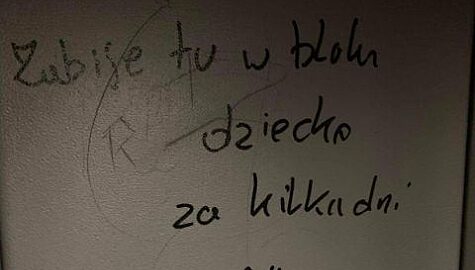 Zabije tu w bloku
dziecko
za kilkadni